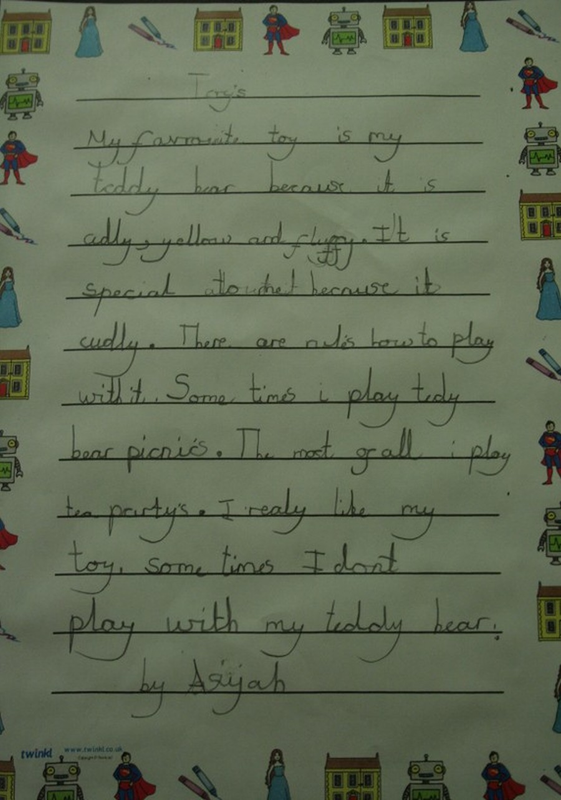 Toys
My favrouite toy is my
teddy bear because it is
cudly, yellow and fluffy. It is
special because it
cudly. There are rules how to play
with it. Some times i play tedy
bear picnic's. The most of all i play
tea prarty's. I realy like my
toy. some times I dont
play with my teddy bear.
by Asiyah
twinkl www.twinkl.co.uk